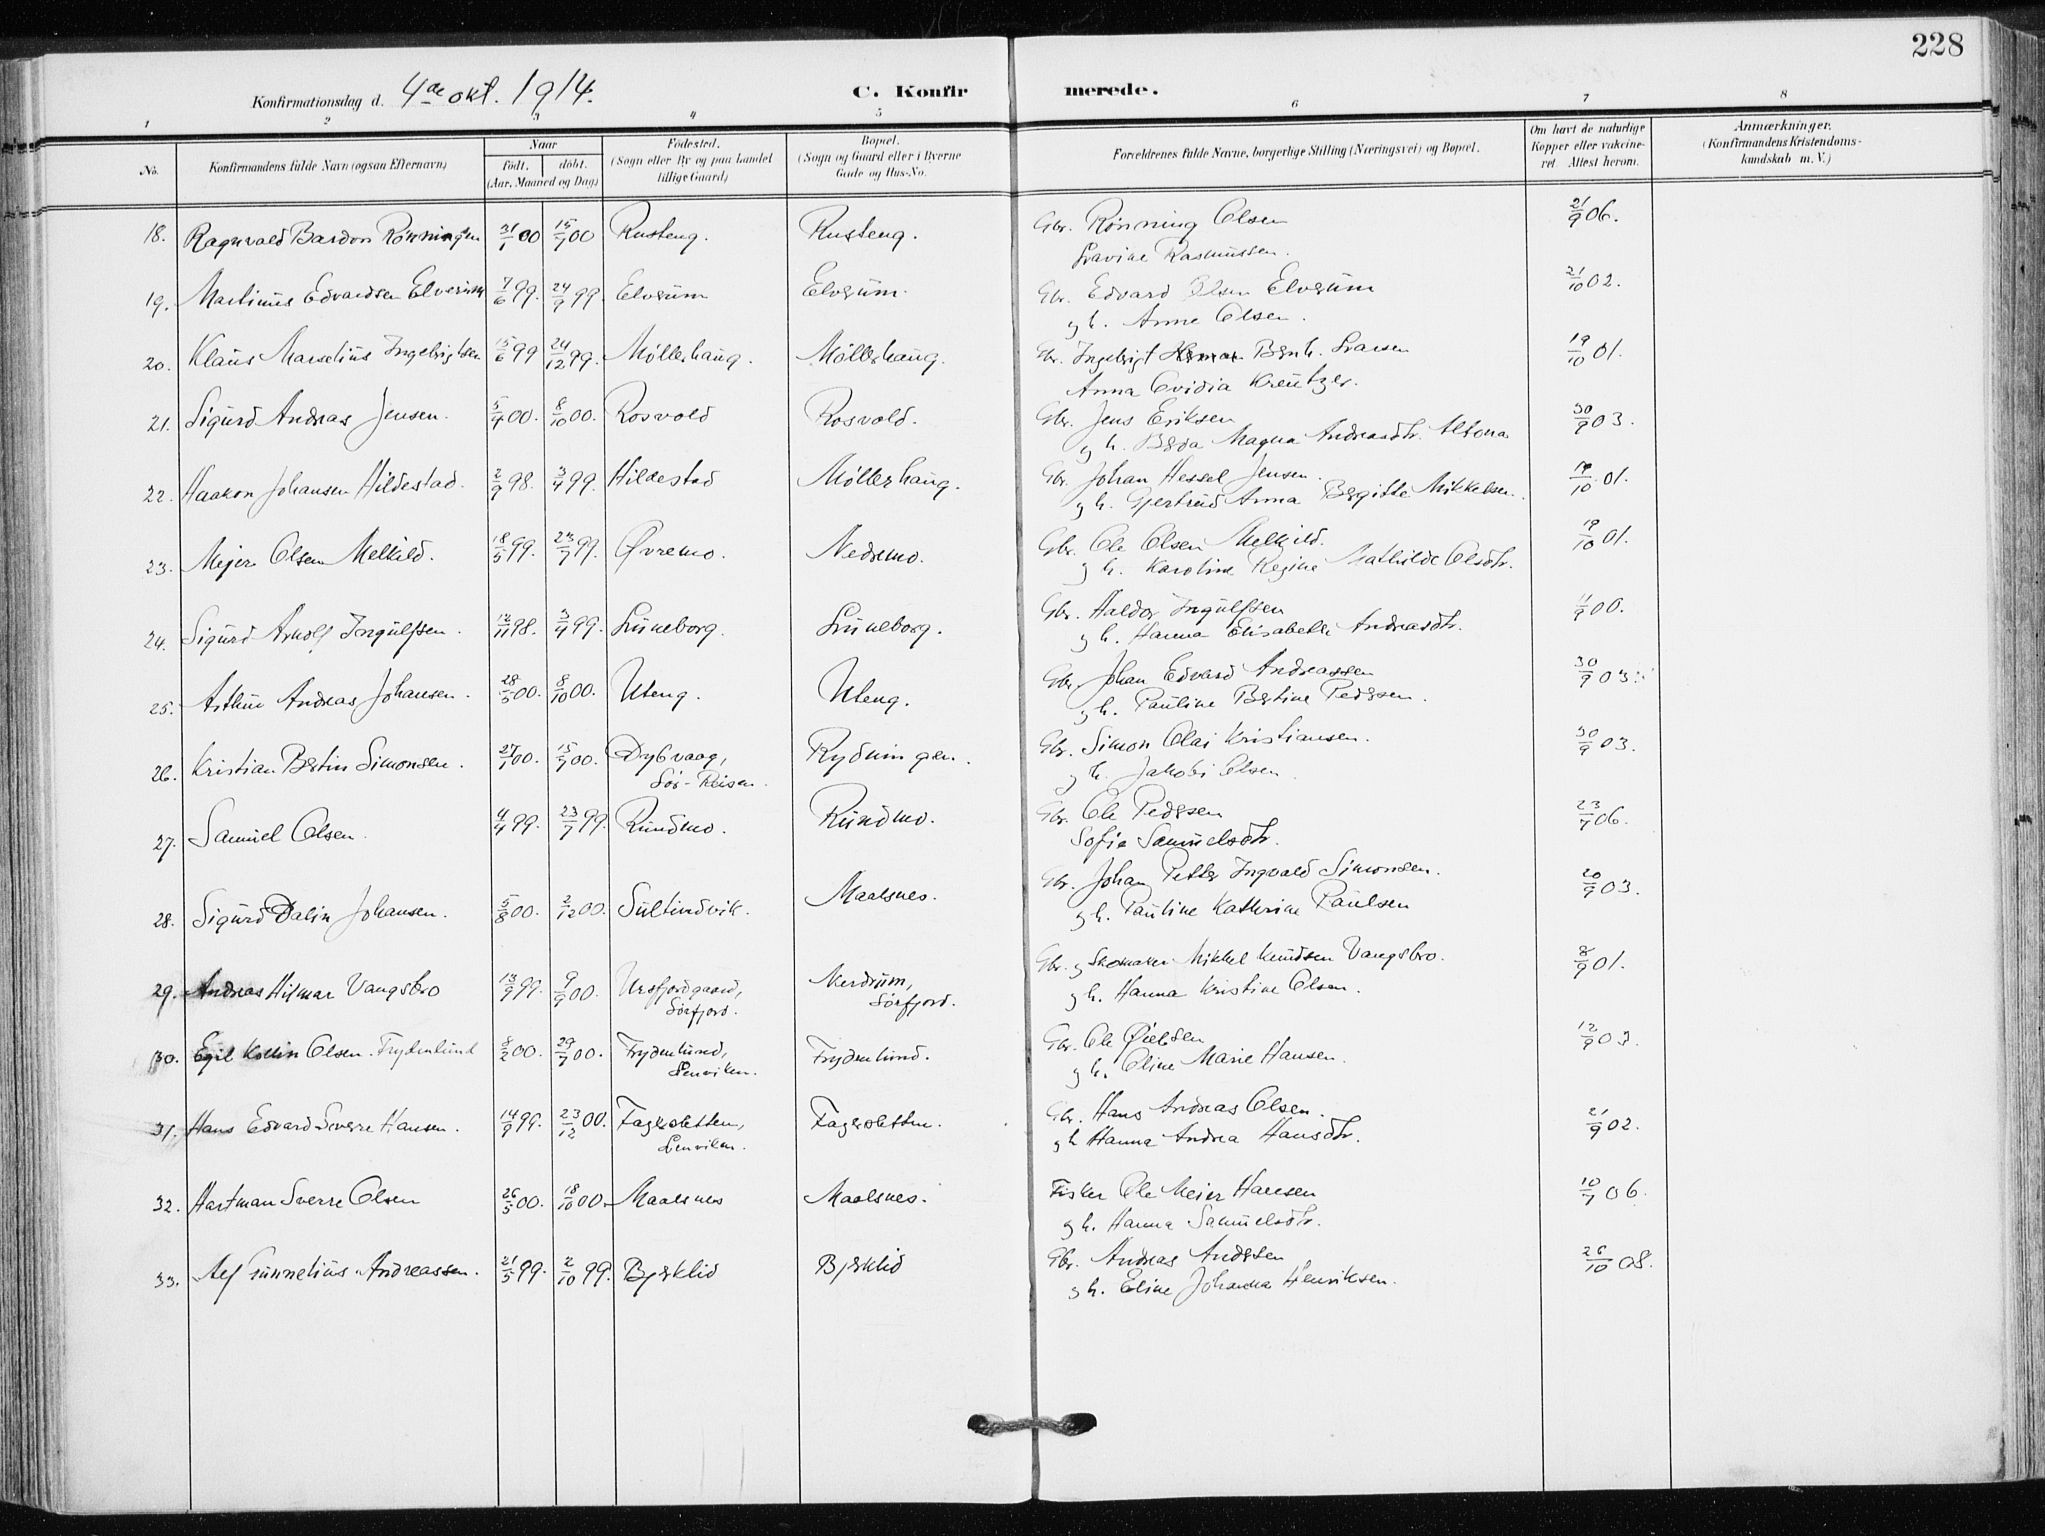 228
Konfirmationsdag d. 4de okt. 1914.
C. Konfirmerede.
1 2 3 4 5 6 7 8
No.
Konfirmandens fulde Navn (ogsaa Efternavn)
Naar
født. døbt.
(Aar, Maaned og Dag)
Fødested.
(Sogn eller By og paa Landet
tillige Gaard)
Bopæl.
(Sogn og Gaard eller i Byerne
Gade og Hus-No.
Forældrenes fulde Navne, borgerlige Stilling (Næringsvei) og Bopæl.
Om havt de naturlige
Kopper eller vaccine-
ret. Attest herom.
Anmærkninger.
(Konfirmandens Kristendoms-
kundskab m. V.)
18. Ragnvald Bardon Rønningen 31/1 00 15/7 00 Rusteng. Rusteng. Gbr. Rønning Olsen 21/9 06.
Lavine Rasmussen.
19. Martinus Edvardsen Elverum 7/6 99. 24/9 99. Elverum Elverum. Gbr. Edvard Olsen Elverum 21/10 02.
g h. Anne Olsen.
20. Klaus Marselius Ingebrigtsen 15/6 99 24/12 99. Møllerhaug. Møllerhaug. Gbr. Ingebrigt Bernh. Larsen 19/10 01.
Anna Ovidia Kreutzer.
21. Sigurd Andreas Jensen. 5/4 00. 8/10 00. Rosvold Rosvold. Gbr. Jens Eriksen 30/9 03.
g h. Berda Magna Andreasdtr. Altona
22. Haakon Johansen Hildestad. 2/9 98. 3/4 99. Hildestad Møllerhaug. Gbr. Johan Hessel Jensen. 19/10 01.
g h. Gjertrud Anna Bergitte Mikkelsen.
23. Mejer Olsen Melkild. 18/5 99. 23/7 99. Øvremo. Nedremo. Gbr. Ole Olsen Melkild. 19/10 01.
g h. Karoline Regine Mathilde Olsdtr.
24. Sigurd Arnolf Ingulfsen. 12/11 98. 3/4 99. Luneborg. Luneborg. Gbr. Haldor Ingulfsen 11/9 00.
g h. Hanna Elisabeth Andreasdtr.
25. Arthur Andreas Johansen. 28/5 00. 8/10 00. Uteng. Uteng. Gbr. Johan Edvard Andreassen 30/9 03.
g h. Pauline Bertine Pedersen.
26. Kristian Bertin Simonsen. 27/1 00. 15/7 00. Dybvaag, Rydningen. Gbr. Simon Olai Kristiansen. 30/9 03.
Sør-Reisen. g h. Jakobi Olsen
27. Samuel Olsen. 4/4 99. 23/7 99. Rundmo. Rundmo. Gbr. Ole Pedersen 23/7 06.
Sofie Samuelsdtr.
28. Sigurd Dalin Johansen. 5/8 00. 2/12 00. Sultindvik. Maalsnes. Gbr. Johan Petter Ingvald Simonsen. 20/9 03.
g h. Pauline Kathrine Paulsen
29. Andreas Hilmar Vangsbro 13/9 99. 9/9 00. Ursfjordgaard, Nerdrum, Gbr. g Skomaker Mikkel Knudsen Vangsbro. 8/9 01.
Sørfjord. Sørfjord. g h. Hanna Kristine Olsen.
30. Egil Kollin Olsen. Frydenlund 8/2 00. 29/7 00. Frydenlund, Frydenlund. Gbr. Ole 12/9 03.
Lenviken. g h. Oline Marie Hansen.
31. Hans Edvard Sverre Hansen. 14/9 99. 23/12 00. Fagersletten, Fagersletten. Gbr. Hans Andreas Olsen. 21/9 02.
Lenviken. g h Hanna Andrea Hansdtr.
32. Hartman Sverre Olsen 26/5 00. 18/10 00. Maalsnes Maalsnes. Fisker Ole Meier Hansen 10/7 06.
g h. Hanna Samuelsdtr.
33. Alf Andreassen. 21/5 99. 2/10 99. Bjerklid Bjerklid Gbr. Andreas Andersen 26/10 08.
g h. Eline Johanna Henriksen.